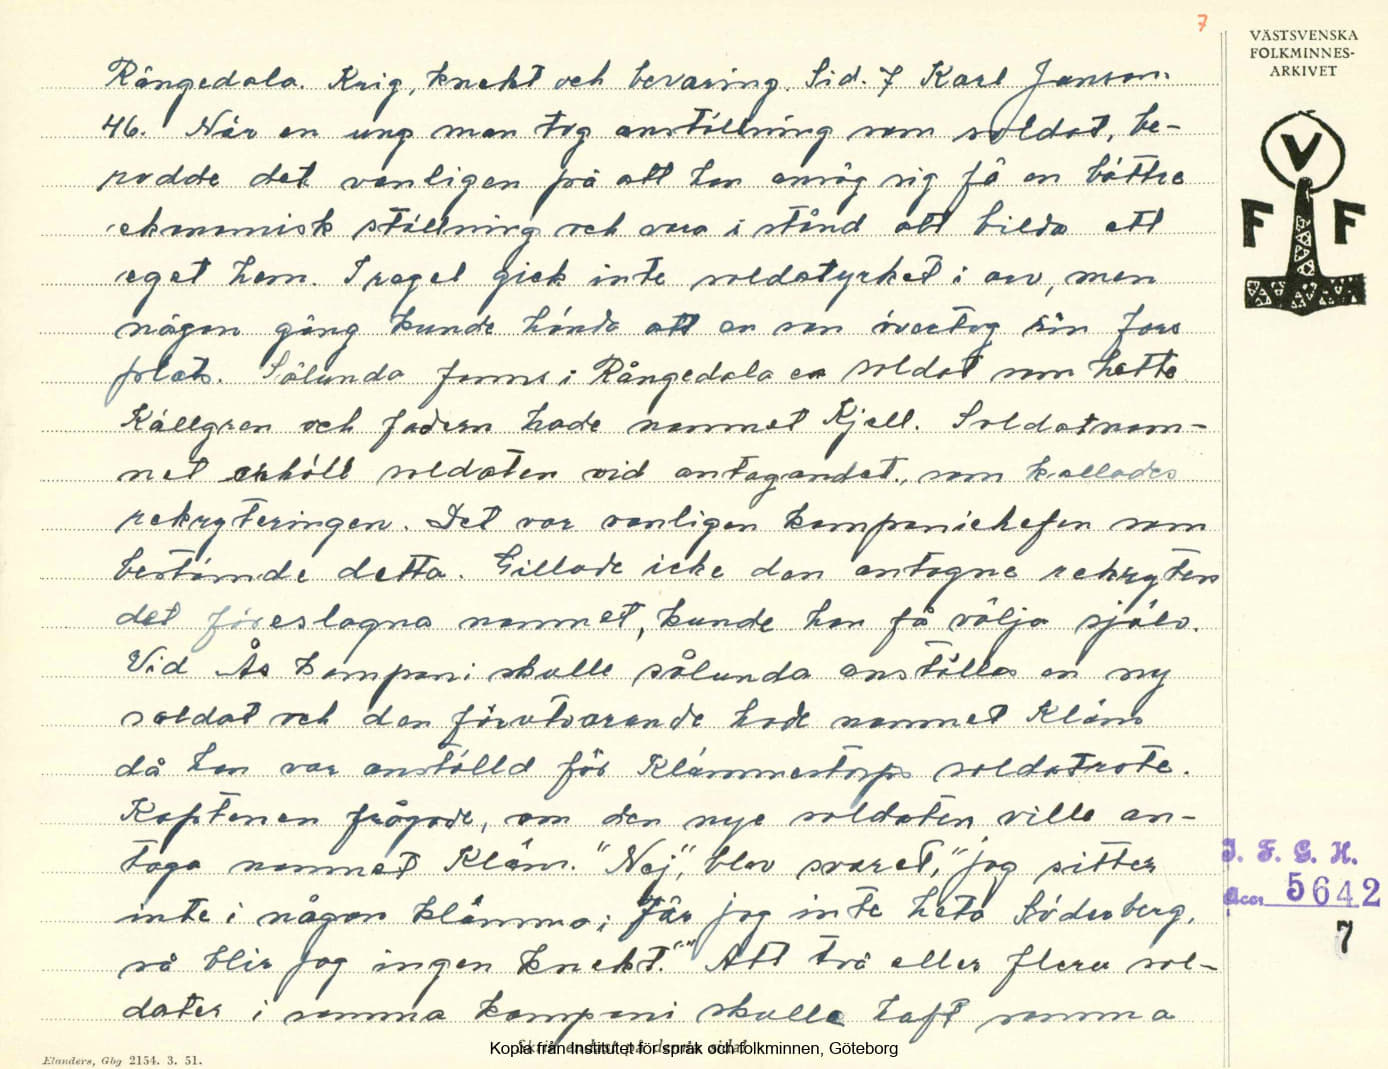 7
VÄSTSVENSKA
FOLKMINNES-
ARKIVET
V
F F
Rångedala. Krig, knekt och bevaring. Sid. 7 Karl Janson.
46. När en ung man tog anställning som soldat, be-
rodde det vanligen på att han ansåg sig få en bättre
ekonomisk ställning och vara i stånd att bilda ett
eget hem. I regel gick inte soldatyrket i arv, men
någon gång kunde hända att en son övertog sin fars
plats. Sålunda fanns i Rångedala en soldat som hette
Källgren och fadern hade namnet Kjell. Soldatnam-
net erhöll soldaten vid antagandet, som kallades
rekryteringen. Det var vanligen kompanichefen som
bestämde detta. Gillade icke den antagne rekryten
det föreslagna namnet, kunde han få välja själv.
Vid Ås kompani skulle sålunda anställas en ny
soldat och den förutvarande hade namnet Kläm
då han var anställd för Klämmestorps soldatrote.
Kaptenen frågade, om den nye soldaten ville an-
taga namnet Kläm. "Nej", blev svaret, "jag sitter
inte i någon klämma; får jag inte heta Söderberg,
så blir jag ingen knekt." Att två eller flera sol-
dater i samma kompani skulle haft samma
I. F. G. H.
Acc. 5642
7
Elanders, Gbg 2154. 3. 51.
Kopia från Institutet för språk och folkminnen, Göteborg